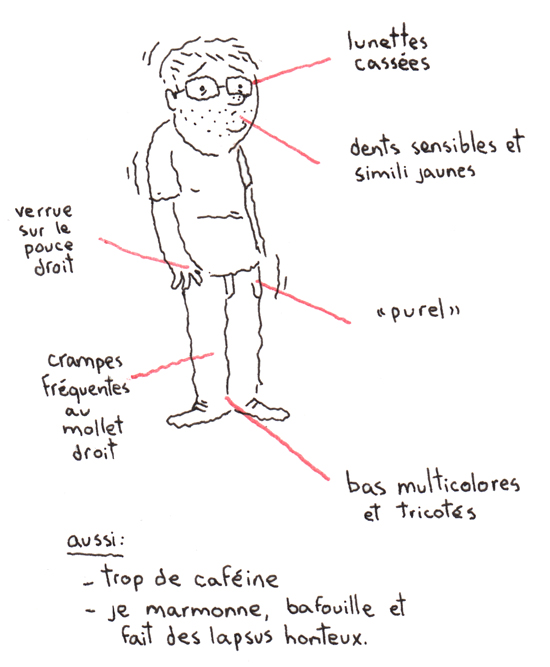 lunettes
cassées
dents sensibles et
simili jaunes
verrue
sur le
pouce
droit
«purel»
crampes
fréquentes
au
mollet
droit
bas multicolores
et tricotés
aussi:
- trop de caféine
- je marmonne, bafouille et
fait des lapsus honteux.